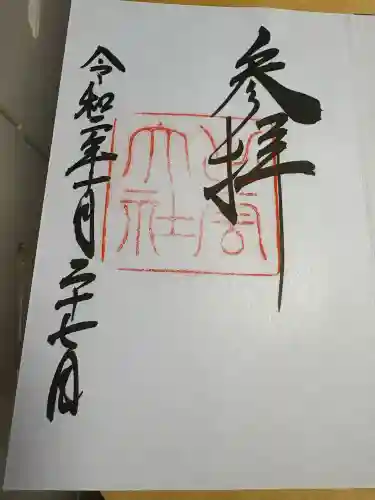 参拝
出雲
大社
令和二年一月二十七日